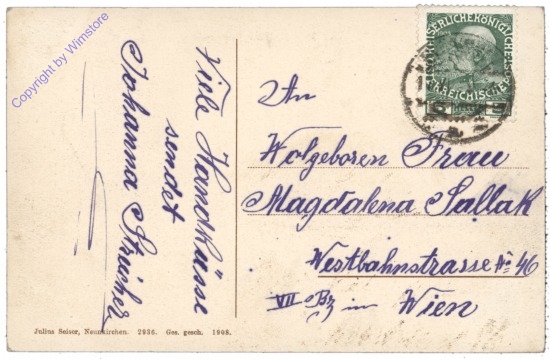 Copyright by Wimstore
Viele Handküsse
sendet
Johanna Streicher
An
Wolgeboren Frau
Magdalena Sallak
Westbahnstrasse No 46
VII Bz in Wien
KAISERLICHE KÖNIGLICHE
5 5
Julius Seiser, Neunkirchen. 2936. Ges. gesch. 1908.